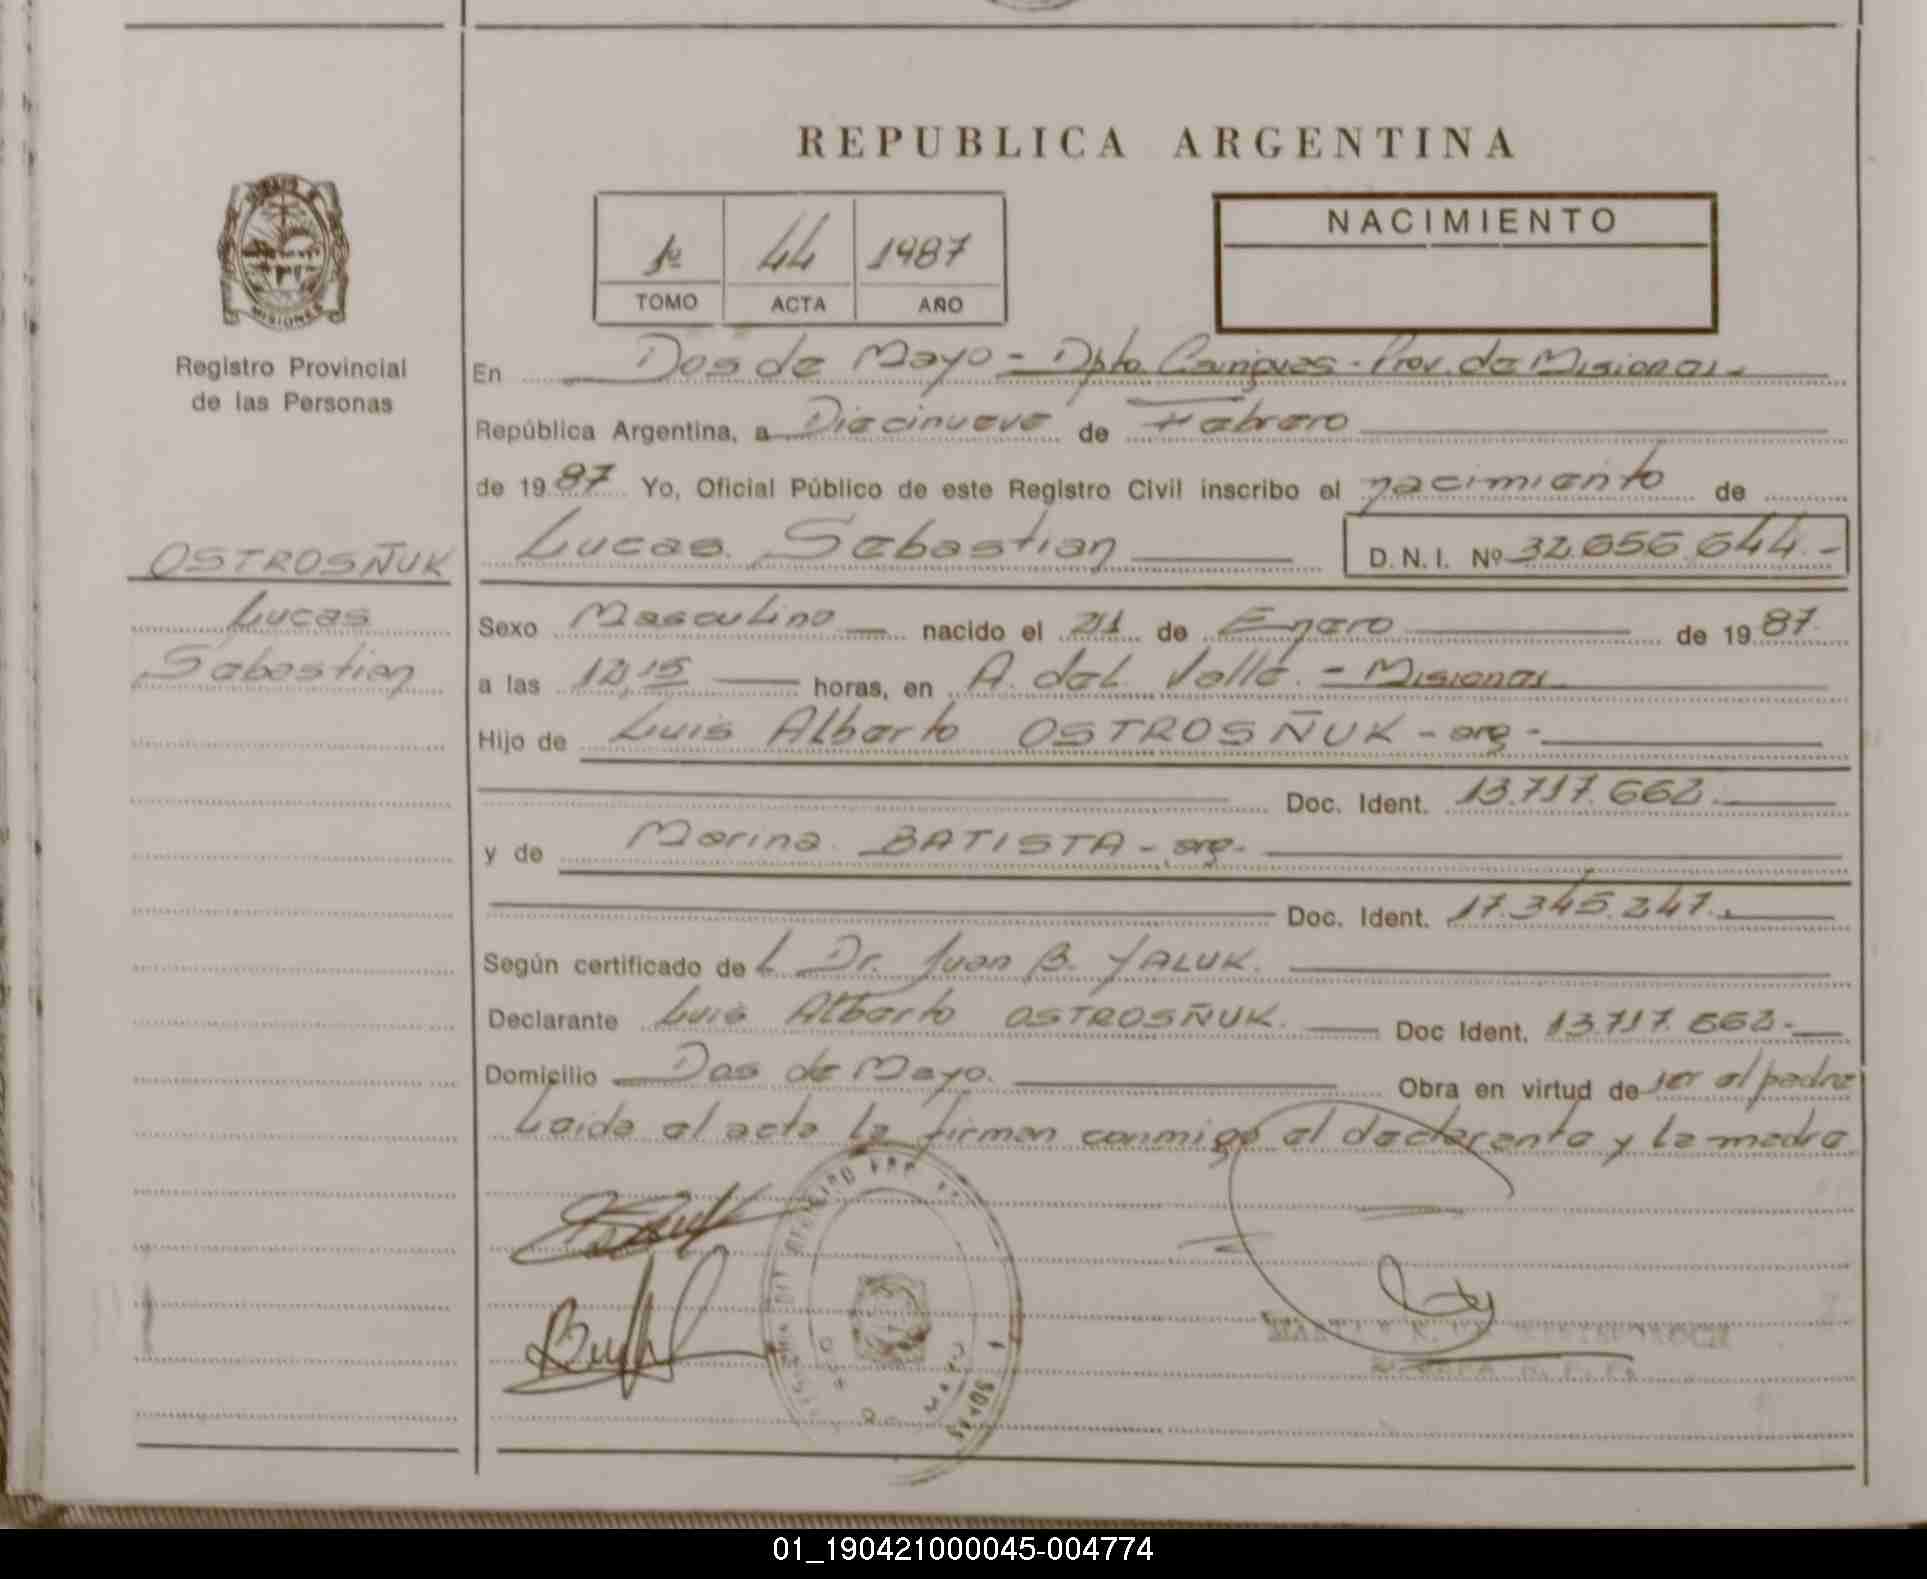 REPUBLICA ARGENTINA
1º 44 1987
TOMO ACTA AÑO
NACIMIENTO
MISIONES
Registro Provincial
de las Personas
En Dos de Mayo - Dpto. Cainguas - Prov. de Misiones
República Argentina, a Diecinueve de Febrero
de 1987 Yo, Oficial Público de este Registro Civil inscribo el nacimiento de
OSTROSÑUK
Lucas Sebastian D.N.I. Nº 32.656.644.-
Lucas
Sebastian
Sexo Masculino nacido el 21 de Enero de 1987
a las 12,15 horas, en A. del Valle - Misiones
Hijo de Luis Alberto OSTROSÑUK - arg -
Doc. Ident. 13.717.662.
y de Marina BATISTA - arg.
Doc. Ident. 17.345.247.
Según certificado del Dr. Juan B. YALUK.
Declarante Luis Alberto OSTROSÑUK. Doc Ident. 13.717.662.-
Domicilio Dos de Mayo. Obra en virtud de ser el padre
Leida el acta la firman conmigo el declarante y la madre
01_190421000045-004774